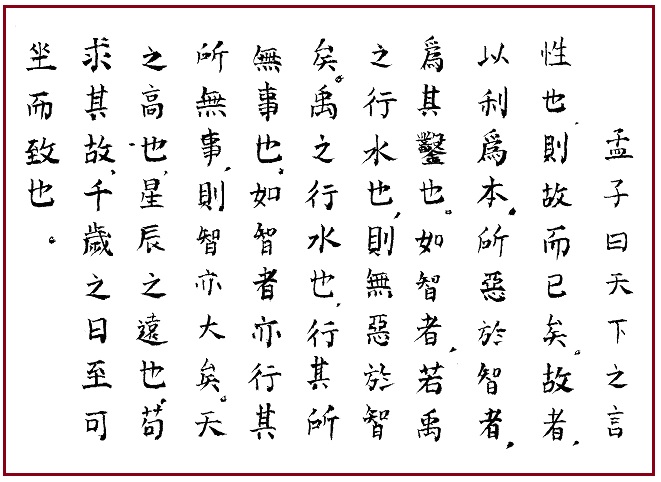 孟子曰天下之言
性也,則故而已矣。故者,
以利爲本。所惡於智者,
爲其鑿也。如智者,若禹
之行水也,則無惡於智
矣。禹之行水也,行其所
無事也。如智者亦行其
所無事,則智亦大矣。天
之高也,星辰之遠也,苟
求其故,千歲之日至可
坐而致也。